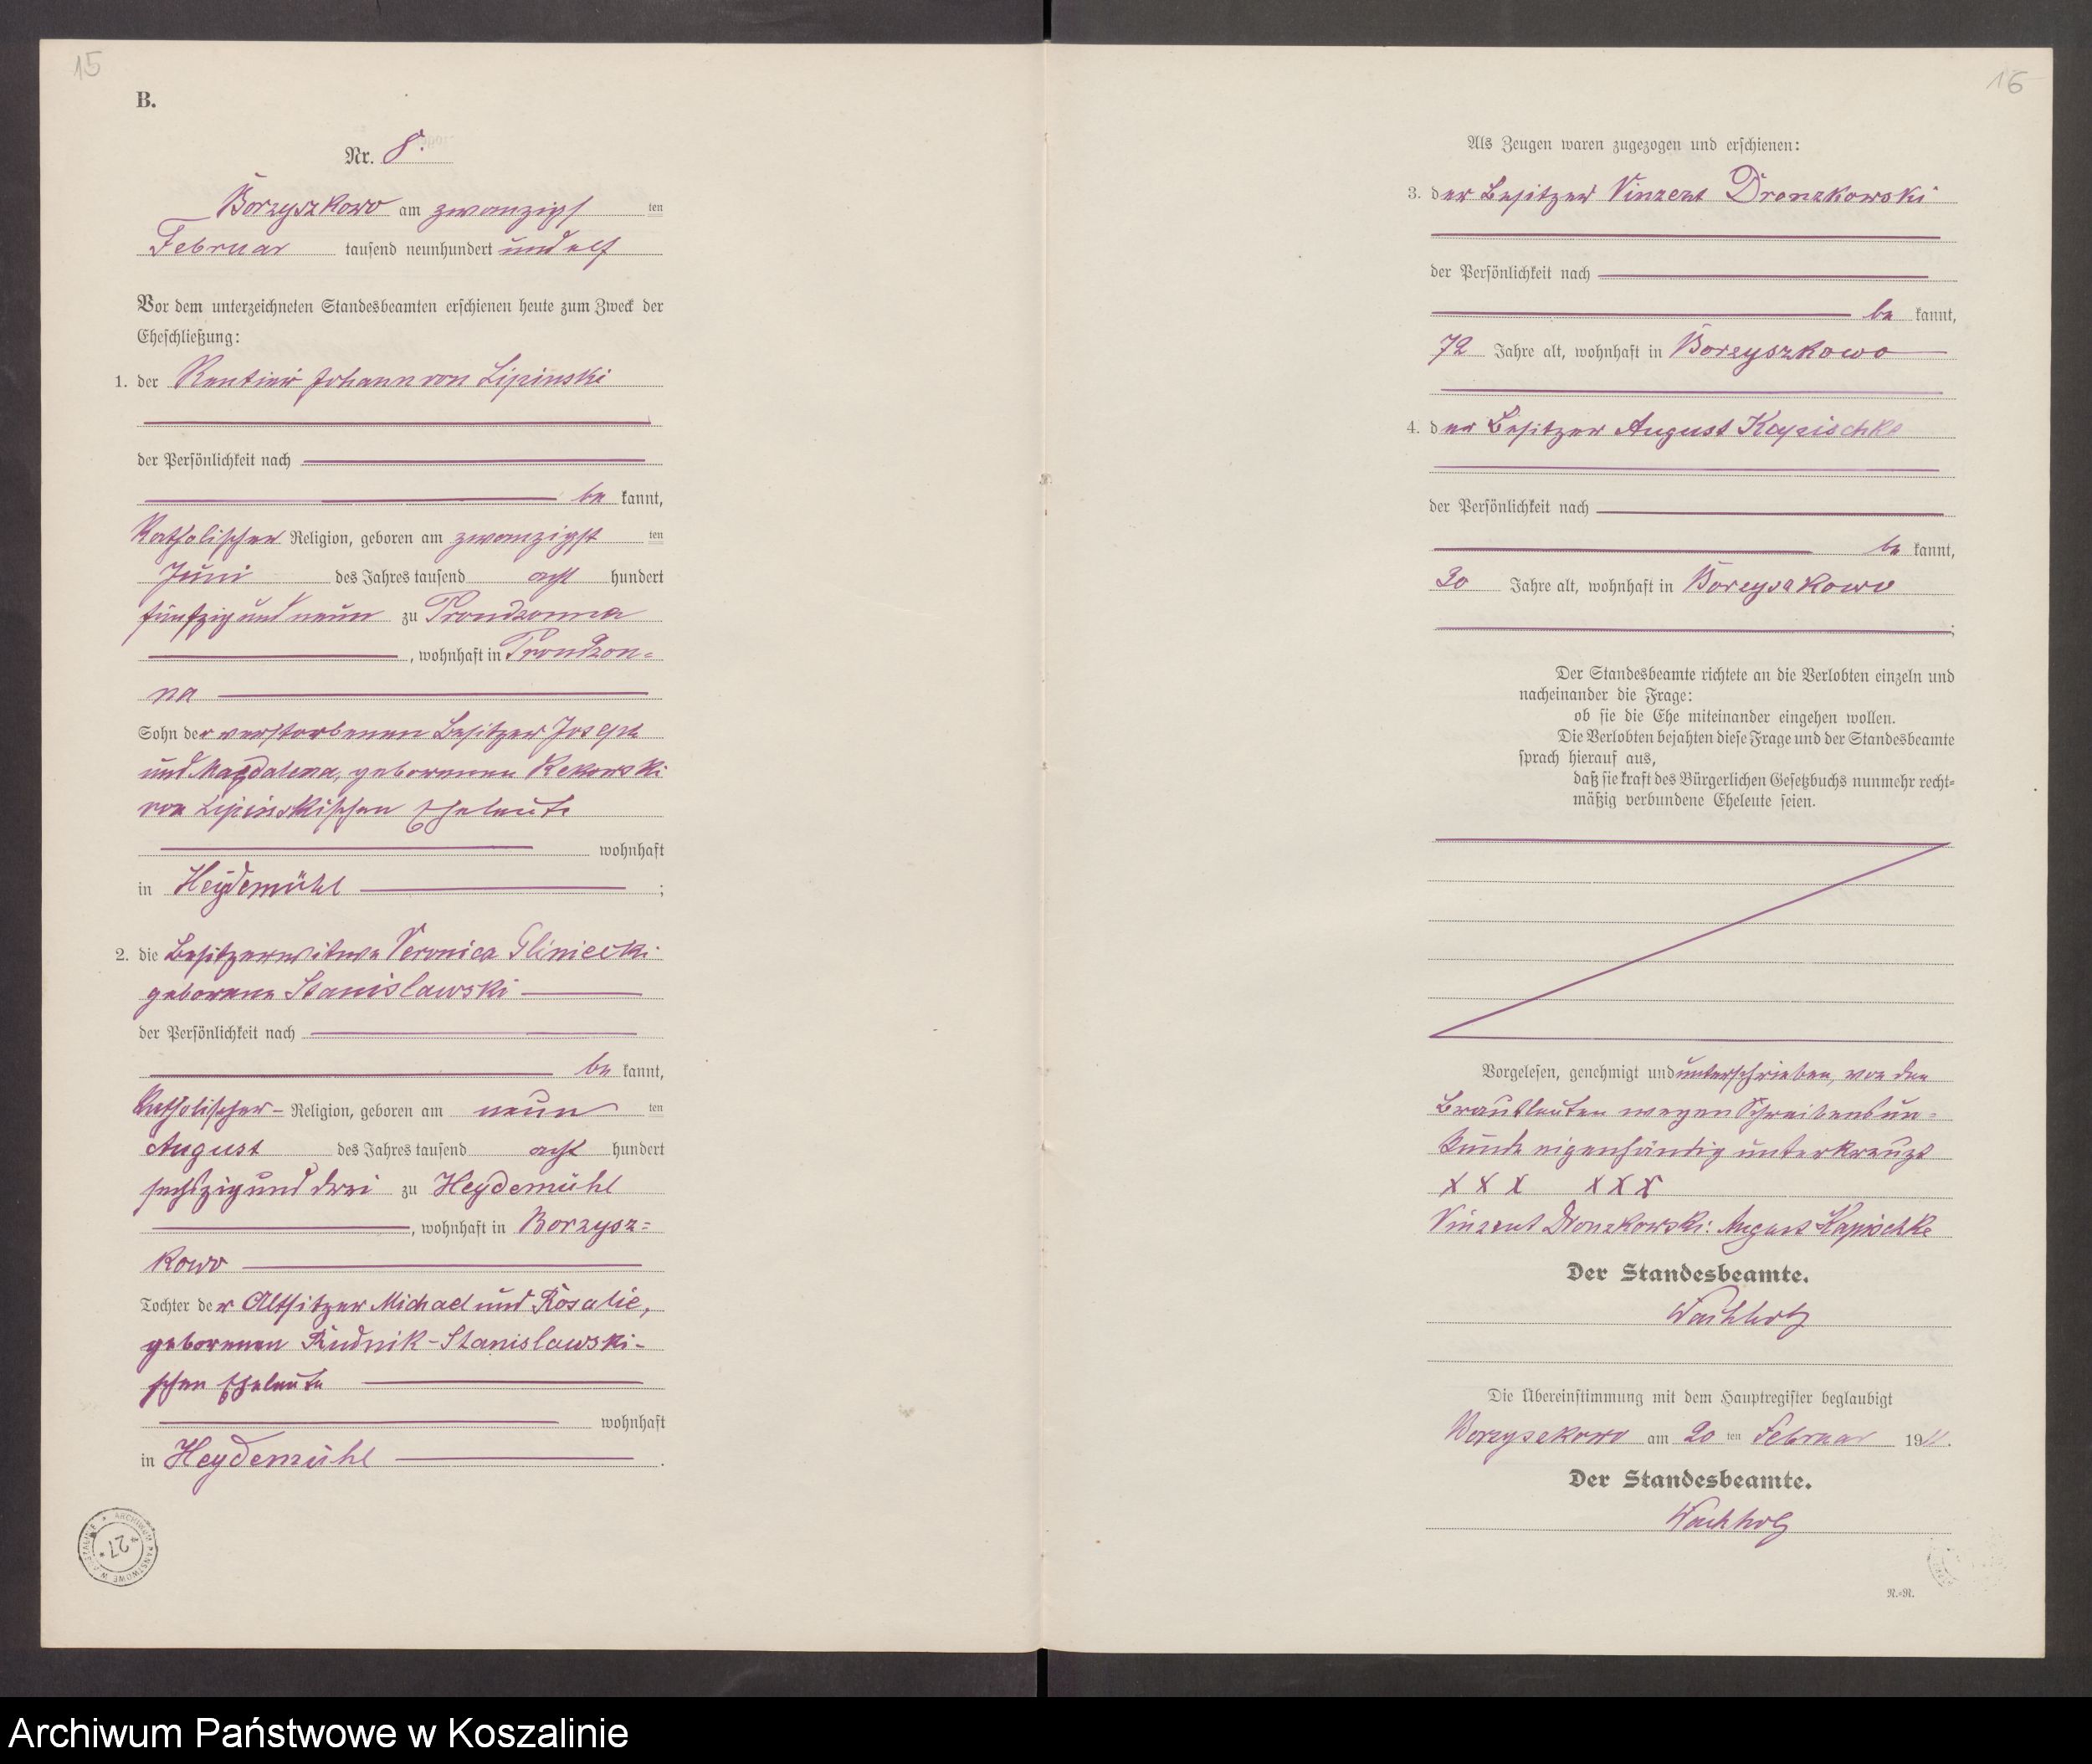 15
B.
Nr. 8.
Borzyszkowo am zwanzigsten
Februar tausend neunhundert und elf
Vor dem unterzeichneten Standesbeamten erschienen heute zum Zweck der
Eheschließung:
1. der Rentier Johann von Lipinski
der Persönlichkeit nach
be kannt,
Katholischer Religion, geboren am zwanzigst ten
Juni des Jahres tausend acht hundert
fünfzig und neun zu Prondzonna
, wohnhaft in Prondzon=
na
Sohn der verstorbenen Besitzer Joseph
und Magdalena, geborenen Rekowski
von Lipinskischen Eheleute
wohnhaft
in Heydemühl ;
2. die Besitzerwitwe Veronica Gliniecki
geborene Stanislawski
der Persönlichkeit nach
be kannt,
Katholischer- Religion, geboren am neun ten
August des Jahres tausend acht hundert
sechszig und drei zu Heydemühl
, wohnhaft in Borzysz=
kowo
Tochter der Altsitzer Michael und Rosalie,
geborenen Rudnik-Stanislawski-
schen Eheleute
wohnhaft
in Heydemühl .
ARCHIWUM PAŃSTWOWE W KOSZALINIE
27
16
Als Zeugen waren zugezogen und erschienen:
3. der Besitzer Vinzent Dronzkowski
der Persönlichkeit nach
be kannt,
72 Jahre alt, wohnhaft in Borzyszkowo
4. der Besitzer August Kapischke
der Persönlichkeit nach
be kannt,
30 Jahre alt, wohnhaft in Borzyszkowo
;
Der Standesbeamte richtete an die Verlobten einzeln und
nacheinander die Frage:
ob sie die Ehe miteinander eingehen wollen.
Die Verlobten bejahten diese Frage und der Standesbeamte
sprach hierauf aus,
daß sie kraft des Bürgerlichen Gesetzbuchs nunmehr recht=
mäßig verbundene Eheleute seien.
Vorgelesen, genehmigt und unterschrieben, von den
Brautleuten wegen Schreibensun=
kunde eigenhändig unterkreuzt
x x x x x x
Vinzent Dronzkowski: August Kapischke
Der Standesbeamte.
Wachholz
Die Übereinstimmung mit dem Hauptregister beglaubigt
Borzyszkowo am 20 ten Februar 1911.
Der Standesbeamte.
Wachholz
R.=R.
Archiwum Państwowe w Koszalinie